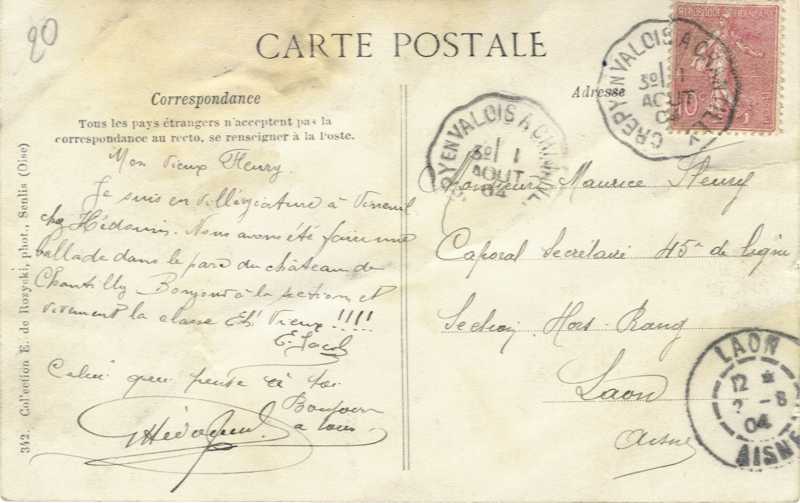 20
CARTE POSTALE
Correspondance
Tous les pays étrangers n'acceptent pas la
correspondance au recto, se renseigner à la Poste.
Adresse
Mon vieux Fleury
Je suis en villégiature à Verneuil
chez Hédouin. Nous avons été faire une
ballade dans le parc du château de
Chantilly Bonjour à la section et
vivement la classe Eh! Vieux !!!!
E. Jacob
Celui qui pense à toi
Bonjour
à tous
Monsieur Maurice Fleury
Caporal Secrétaire 45e de ligne
Section Hors-Rang
Laon
Aisne
342. Collection E. de Rozycki, phot., Senlis (Oise)
CREPY EN VALOIS A CHANTILLY
1
AOUT
04
CREPY EN VALOIS A
1
AOUT
04
LAON
12
2-8
04
AISNE
10